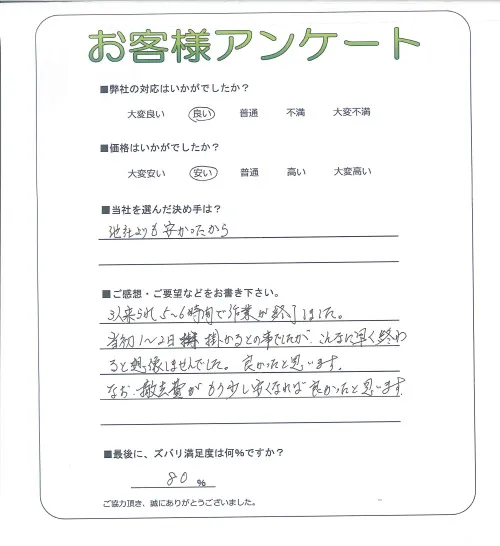 お客様アンケート
■弊社の対応はいかがでしたか？
大変良い 良い 普通 不満 大変不満
■価格はいかがでしたか？
大変安い 安い 普通 高い 大変高い
■当社を選んだ決め手は？
他社よりも安かったから
■ご感想・ご要望などをお書き下さい。
3人来られ、5〜6時間で作業が終了しました。
当初1〜2日 掛かるとの事でしたが、こんなに早く終わ
ると想像しませんでした。良かったと思います。
なお、撤去費がもう少し安くなれば良かったと思います。
■最後に、ズバリ満足度は何%ですか？
80 %
ご協力頂き、誠にありがとうございました。